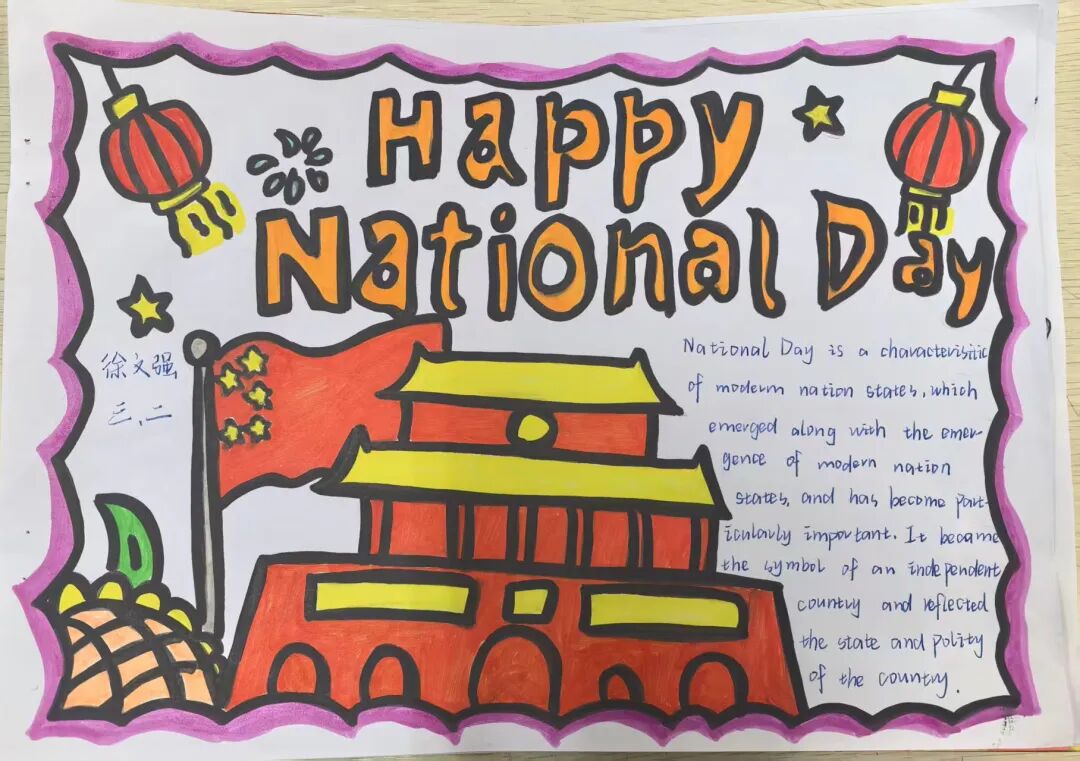 Happy
National Day
徐文强
三.二
National Day is a characterisitic
of modern nation states, which
emerged along with the emer-
gence of modern nation
states, and has become part-
icularly important. It became
the symbol of an independent
country and reflected
the state and polity
of the country.